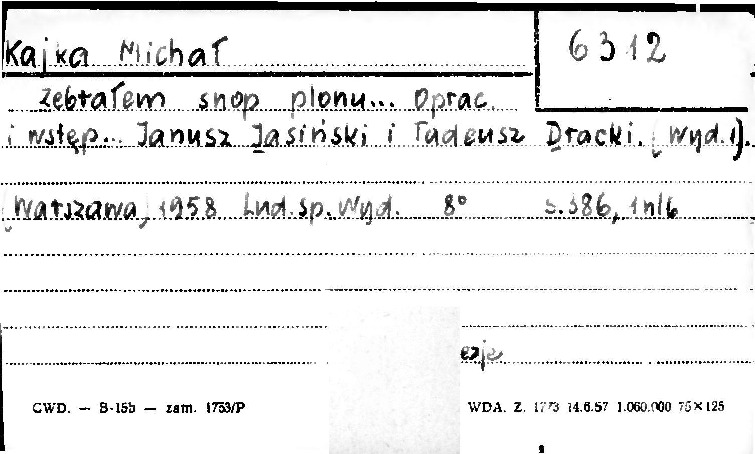 Kajka Michał
6312
Zebrałem snop plonu... Oprac.
i wstęp... Janusz Jasiński i Tadeusz Oracki. [Wyd.1].
[Warszawa, 1958 Lud.sp.Wyd. 8° s.386, 1nlb
CWD. — B-15b — zam. 1753/P
WDA. Z. 1773 14.6.57 1.060.000 75×125